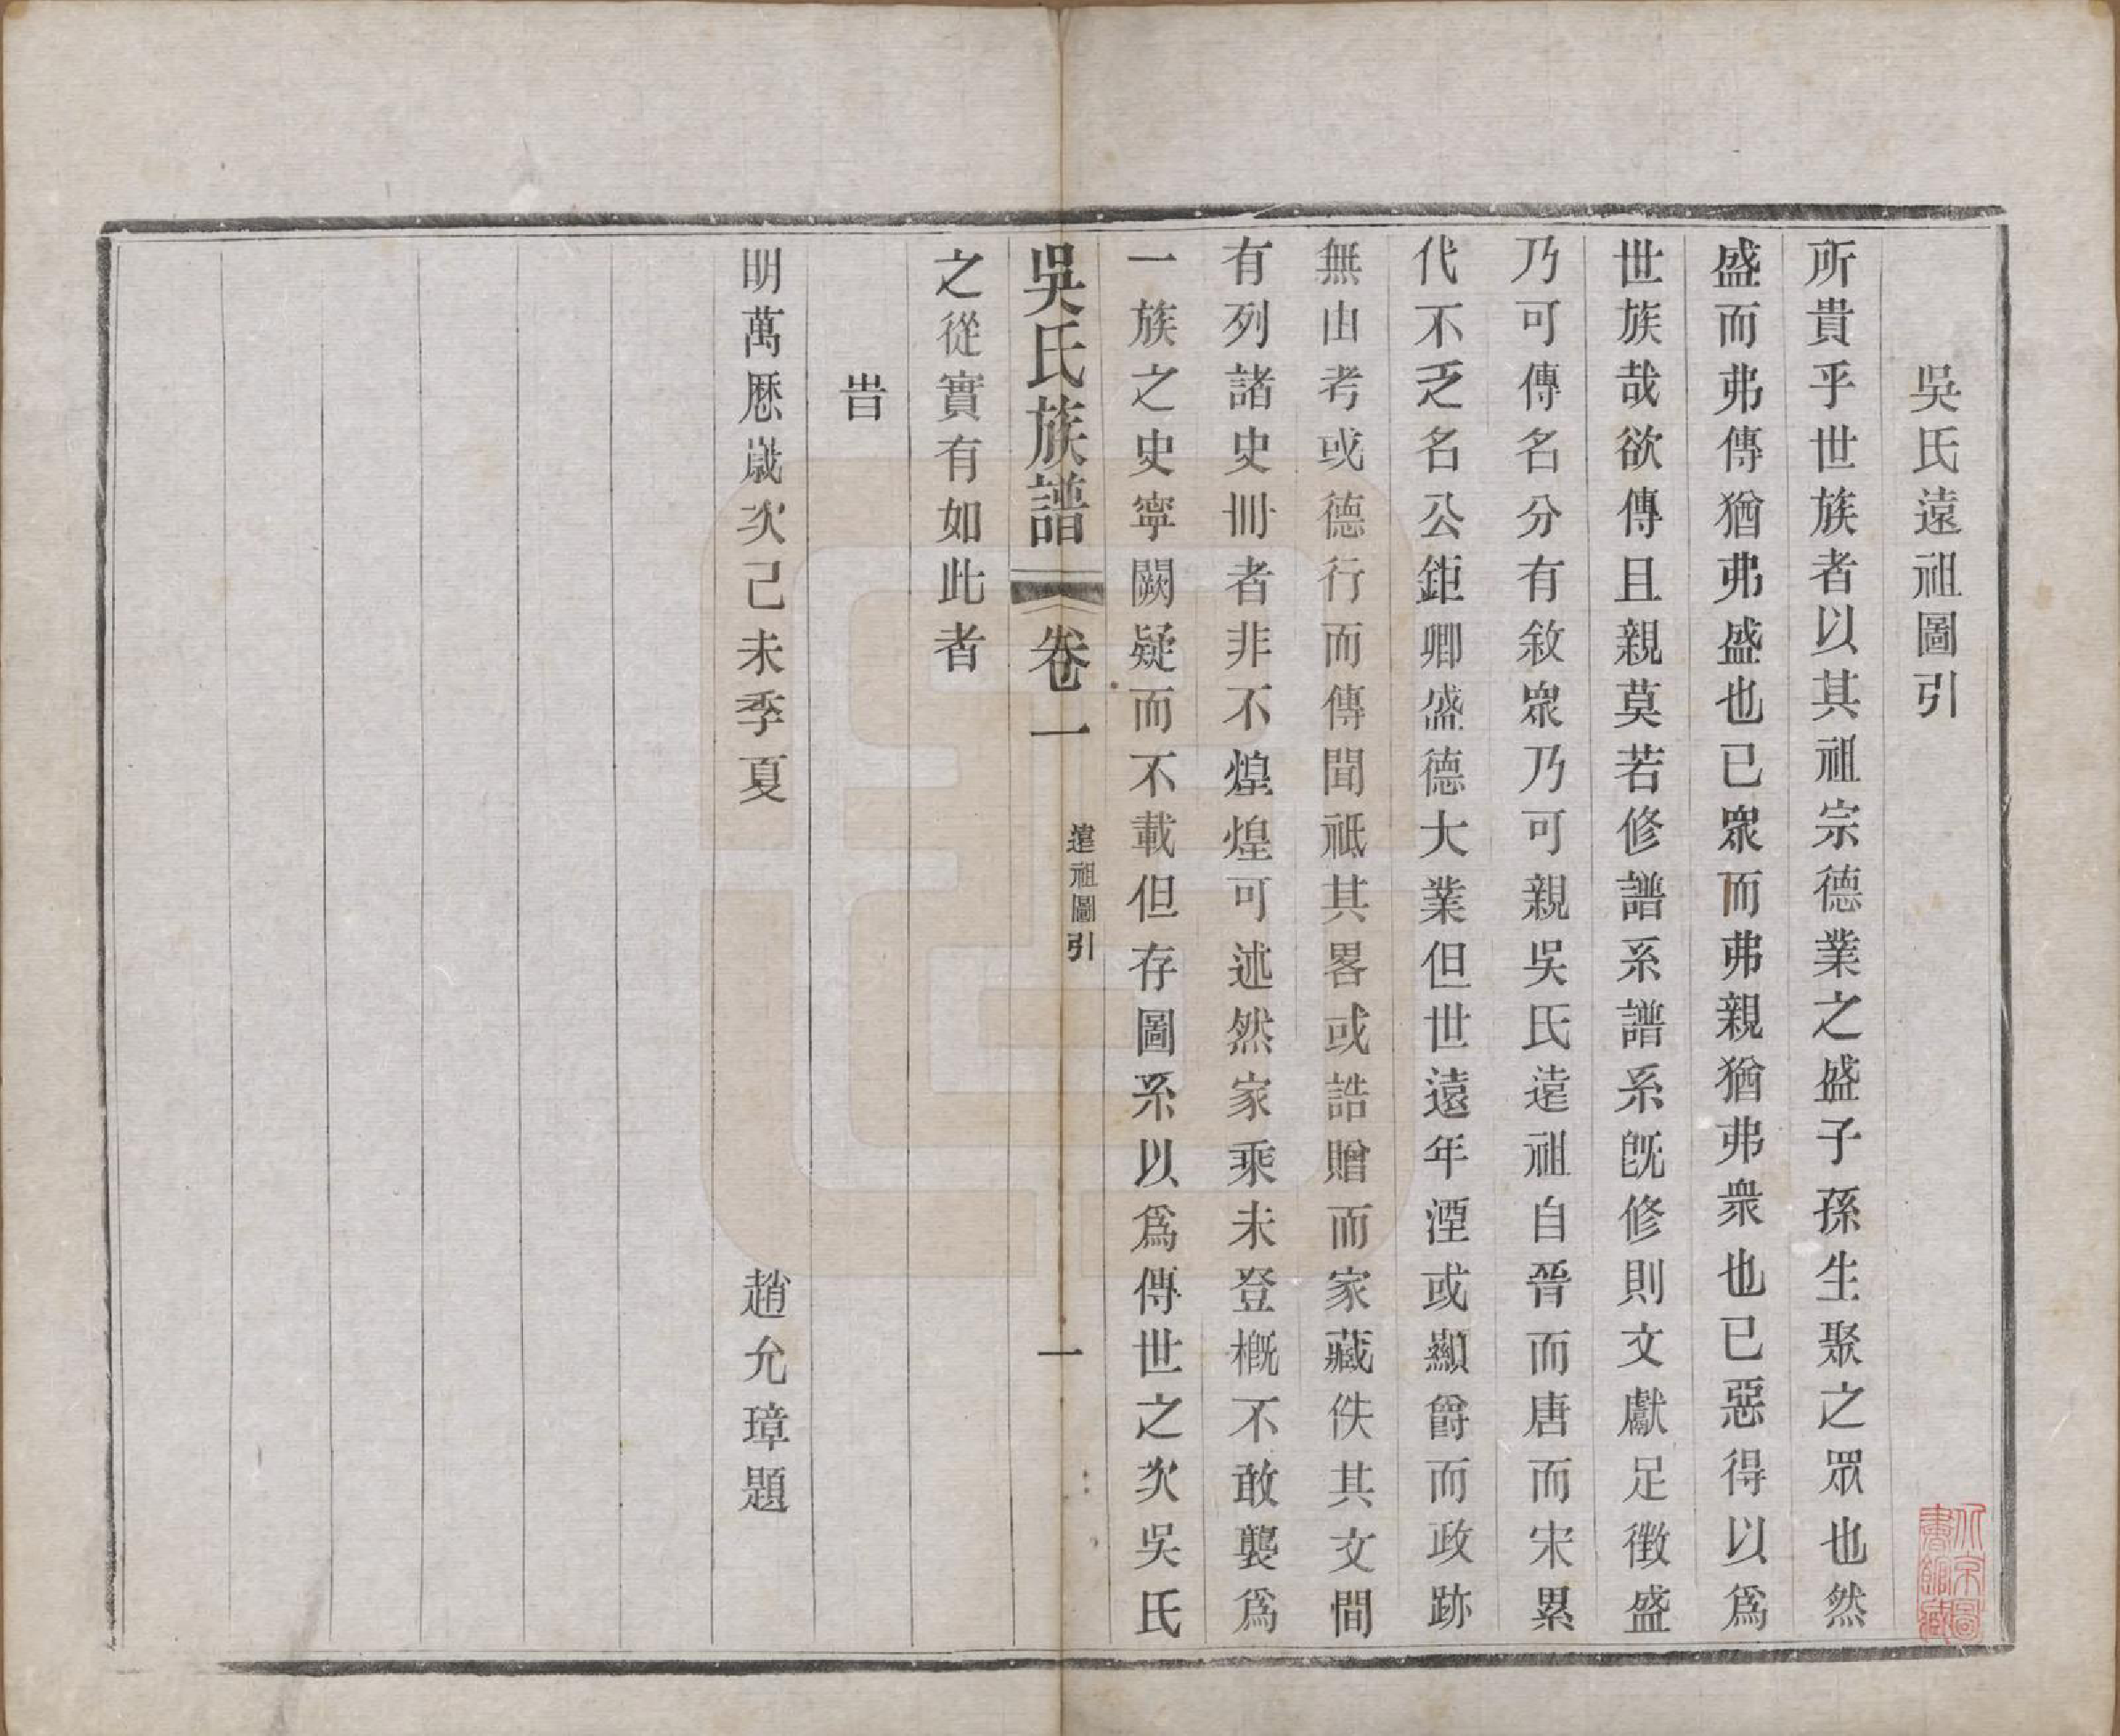 吳氏遠祖圖引
所貴乎世族者以其祖宗德業之盛子孫生聚之眾也然
盛而弗傳猶弗盛也已眾而弗親猶弗衆也已惡得以爲
世族哉欲傳且親莫若修譜系譜系旣修則文獻足徵盛
乃可傳名分有敘眾乃可親吳氏遠祖自晉而唐而宋累
代不乏名公鉅卿盛德大業但世遠年湮或顯爵而政跡
無由考或德行而傳聞祗其畧或誥贈而家藏佚其文間
有列諸史冊者非不煌煌可述然家乘未登槪不敢襲爲
一族之史寧闕疑而不載但存圖系以爲傳世之次吳氏
吳氏族譜 卷一 遠祖圖引 一
之從實有如此者
旹
明萬厯歲次己未季夏 趙允璋題